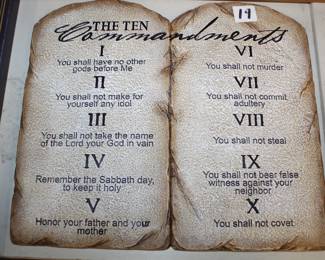 THE TEN
14
Commandments
I
You shall have no other
gods before Me
II
You shall not make for
yourself any idol
III
You shall not take the name
of the Lord your God in vain
IV
Remember the Sabbath day,
to keep it holy
V
Honor your father and your
mother
VI
You shall not murder
VII
You shall not commit
adultery
VIII
You shall not steal
IX
You shall not bear false
witness against your
neighbor
X
You shall not covet